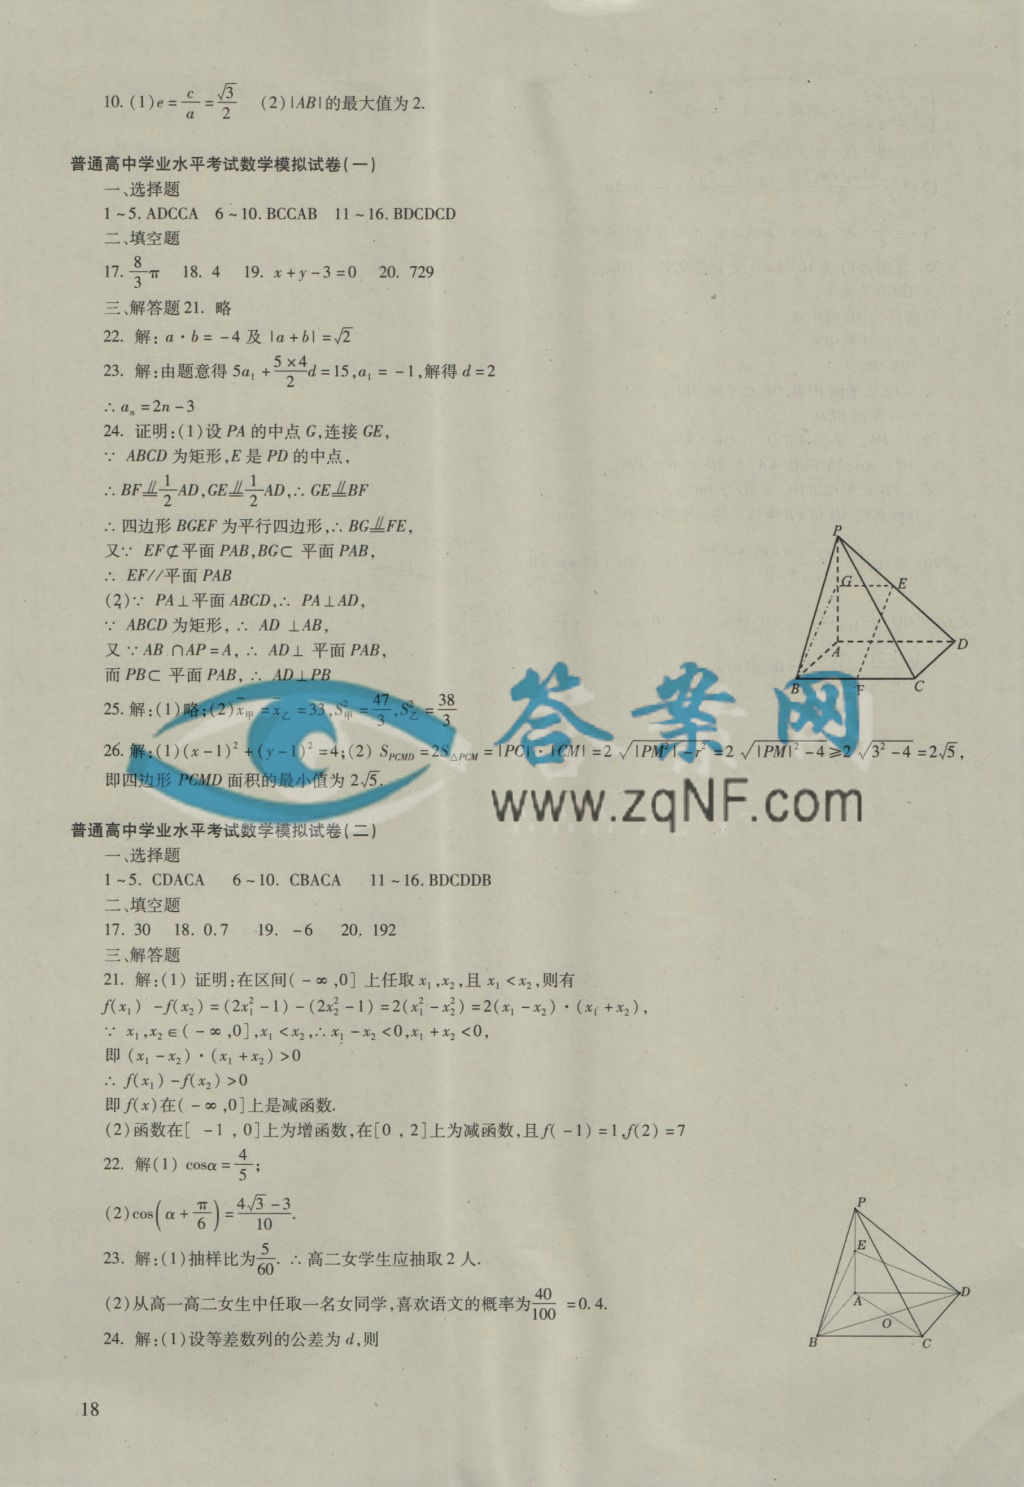 10. (1)e = c/a = √3/2 (2)|AB|的最大值为2.
普通高中学业水平考试数学模拟试卷(一)
一、选择题
1~5. ADCCA 6~10. BCCAB 11~16. BDCDCD
二、填空题
17. 8/3 π 18. 4 19. x+y-3=0 20. 729
三、解答题21. 略
22. 解: a·b = -4 及 |a+b| = √2
23. 解:由题意得 5a₁ + (5×4)/2 d = 15, a₁ = -1,解得 d = 2
∴ aₙ = 2n - 3
24. 证明:(1)设 PA 的中点 G,连接 GE,
∵ ABCD 为矩形,E 是 PD 的中点,
∴ BF∥=1/2 AD, GE∥=1/2 AD, ∴ GE∥=BF
∴ 四边形 BGEF 为平行四边形,∴ BG∥=FE,
又∵ EF⊄平面 PAB, BG⊂ 平面 PAB,
∴ EF//平面 PAB
(2)∵ PA⊥平面 ABCD, ∴ PA⊥AD,
∵ ABCD 为矩形, ∴ AD ⊥AB,
又∵ AB ∩AP = A, ∴ AD⊥ 平面 PAB,
而 PB⊂ 平面 PAB, ∴ AD⊥PB
P
G
E
A
D
B
F
C
25. 解:(1)略;(2)x̄甲 = x̄乙 = 33, S²甲 = 47/3, S²乙 = 38/3
26. 解:(1)(x-1)² + (y-1)² = 4;(2) S_PCMD = 2S△PCM = |PC|·|CM| = 2√(|PM²|-r²) = 2√(|PM|²-4) ≥ 2√(3²-4) = 2√5,
即四边形 PCMD 面积的最小值为 2√5.
答案网
www.zqNF.com
普通高中学业水平考试数学模拟试卷(二)
一、选择题
1~5. CDACA 6~10. CBACA 11~16. BDCDDB
二、填空题
17. 30 18. 0.7 19. -6 20. 192
三、解答题
21. 解:(1) 证明:在区间(-∞,0] 上任取 x₁,x₂,且 x₁<x₂,则有
f(x₁) -f(x₂) = (2x₁²-1) - (2x₂²-1) = 2(x₁²-x₂²) = 2(x₁-x₂)·(x₁+x₂),
∵ x₁,x₂∈(-∞,0], x₁<x₂, ∴ x₁-x₂<0, x₁+x₂<0,
即 (x₁-x₂)·(x₁+x₂)>0
∴ f(x₁)-f(x₂)>0
即 f(x)在(-∞,0]上是减函数.
(2)函数在[ -1 , 0]上为增函数,在[0 , 2]上为减函数,且 f( -1) = 1, f(2) = 7
22. 解(1) cosα = 4/5;
(2)cos(α + π/6) = (4√3-3)/10.
23. 解:(1)抽样比为5/60. ∴ 高二女学生应抽取 2 人.
(2)从高一高二女生中任取一名女同学,喜欢语文的概率为40/100 = 0.4.
24. 解:(1)设等差数列的公差为 d,则
P
E
A
D
O
B
C
18